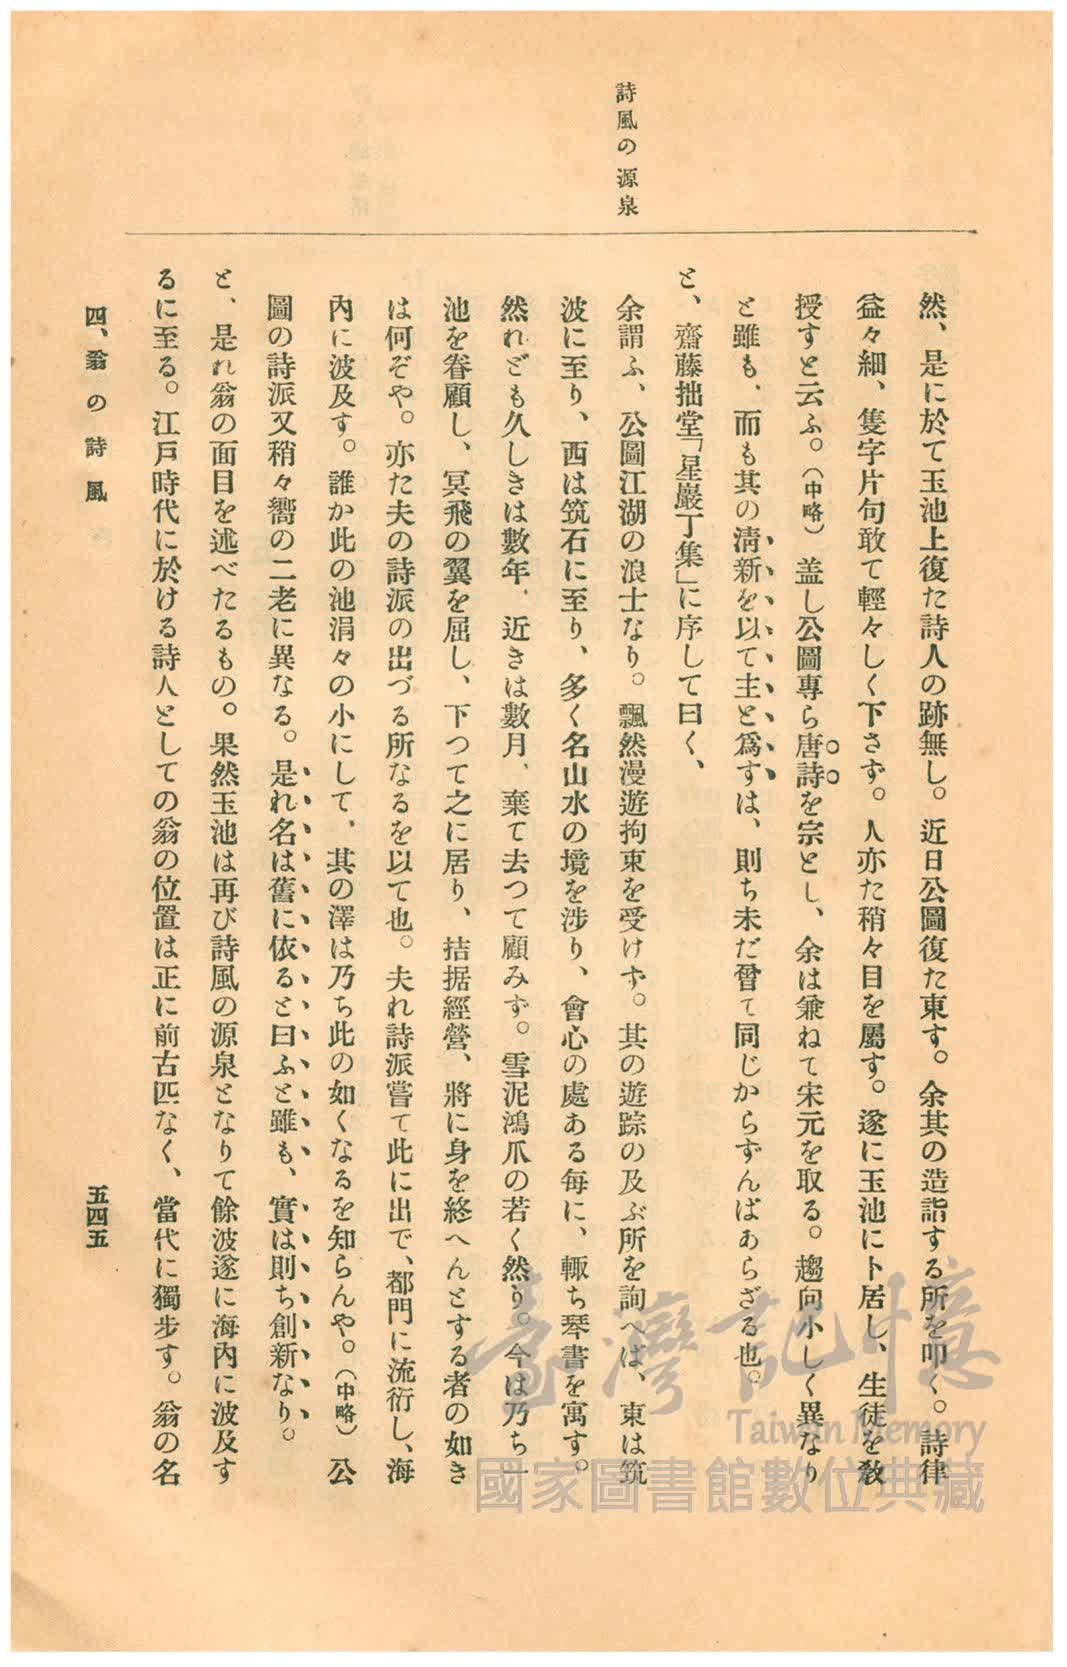 詩風の源泉
然、是に於て玉池上復た詩人の跡無し。近日公圖復た東す。余其の造詣する所を叩く。詩律
益々細、隻字片句敢て輕々しく下さず。人亦た稍々目を屬す。遂に玉池に卜居し、生徒を敎
授すと云ふ。（中略）蓋し公圖專ら唐詩を宗とし、余は兼ねて宋元を取る。趨向小しく異なり
と雖も、而も其の淸新を以て主と爲すは、則ち未だ甞て同じからずんばあらざる也。
と、齋藤拙堂「星巖丁集」に序して曰く、
余謂ふ、公圖江湖の浪士なり。飄然漫遊拘束を受けず。其の遊踪の及ぶ所を詢へば、東は筑
波に至り、西は筑石に至り、多く名山水の境を涉り、會心の處ある每に、輙ち琴書を寓す。
然れども久しきは數年、近きは數月、棄て去つて顧みず。雪泥鴻爪の若く然り。今は乃ち一
池を眷顧し、冥飛の翼を屈し、下つて之に居り、拮据經營、將に身を終へんとする者の如き
は何ぞや。亦た夫の詩派の出づる所なるを以て也。夫れ詩派嘗て此に出で、都門に流衍し、海
內に波及す。誰か此の池涓々の小にして、其の澤は乃ち此の如くなるを知らんや。（中略）公
圖の詩派又稍々嚮の二老に異なる。是れ名は舊に依ると曰ふと雖も、實は則ち創新なり。
と、是れ翁の面目を述べたるもの。果然玉池は再び詩風の源泉となりて餘波遂に海內に波及す
るに至る。江戸時代に於ける詩人としての翁の位置は正に前古匹なく、當代に獨步す。翁の名
四、翁の詩風
五四五
臺灣記憶
Taiwan Memory
國家圖書館數位典藏